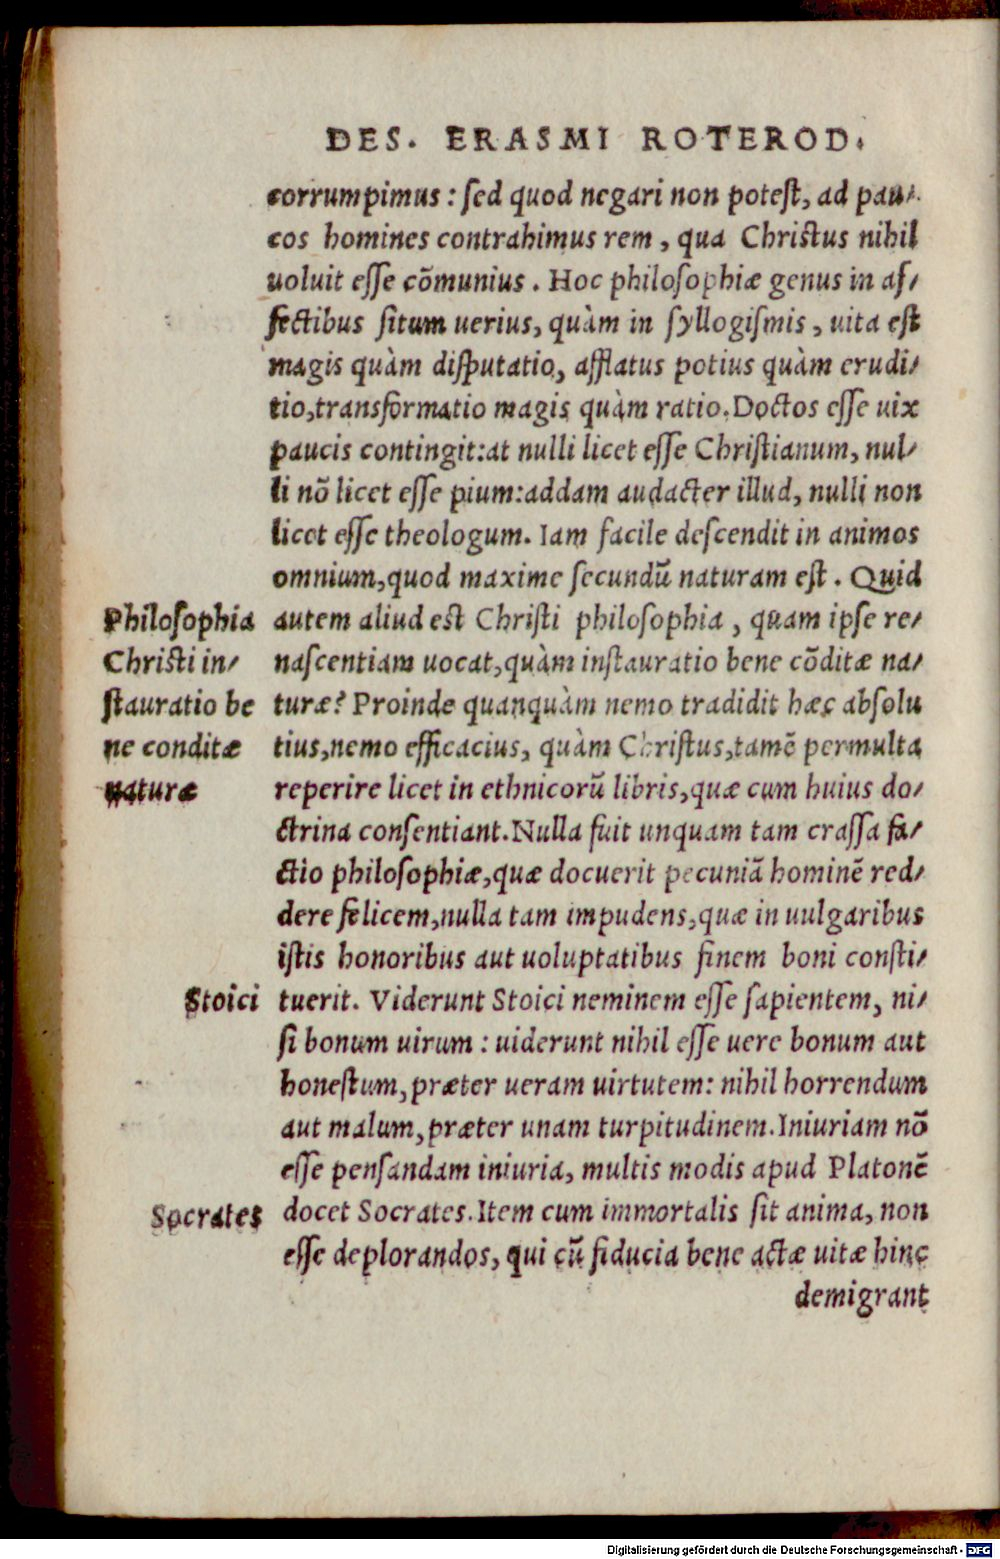 DES. ERASMI ROTEROD.
corrumpimus : sed quod negari non potest, ad pau-
cos homines contrahimus rem, qua Christus nihil
uoluit esse cõmunius. Hoc philosophiæ genus in af-
fectibus situm uerius, quàm in syllogismis, uita est
magis quàm disputatio, afflatus potius quàm erudi-
tio, transformatio magis quàm ratio. Doctos esse uix
paucis contingit: at nulli licet esse Christianum, nul-
li nõ licet esse pium: addam audacter illud, nulli non
licet esse theologum. Iam facile descendit in animos
omnium, quod maxime secundũ naturam est. Quid
Philosophia autem aliud est Christi philosophia, quam ipse re-
Christi in- nascentiam uocat, quàm instauratio bene cõditæ na-
stauratio be turæ? Proinde quanquàm nemo tradidit hæc absolu
ne conditæ tius, nemo efficacius, quàm Christus, tamẽ permulta
naturæ reperire licet in ethnicorũ libris, quæ cum huius do-
ctrina consentiant. Nulla fuit unquam tam crassa fa-
ctio philosophiæ, quæ docuerit pecuniã hominẽ red-
dere felicem, nulla tam impudens, quæ in uulgaribus
istis honoribus aut uoluptatibus finem boni consti-
Stoici tuerit. Viderunt Stoici neminem esse sapientem, ni-
si bonum uirum : uiderunt nihil esse uere bonum aut
honestum, præter ueram uirtutem: nihil horrendum
aut malum, præter unam turpitudinem. Iniuriam nõ
esse pensandam iniuria, multis modis apud Platonẽ
Socrates docet Socrates. Item cum immortalis sit anima, non
esse deplorandos, qui cũ fiducia bene actæ uitæ hinc
demigrant
Digitalisierung gefördert durch die Deutsche Forschungsgemeinschaft - DFG